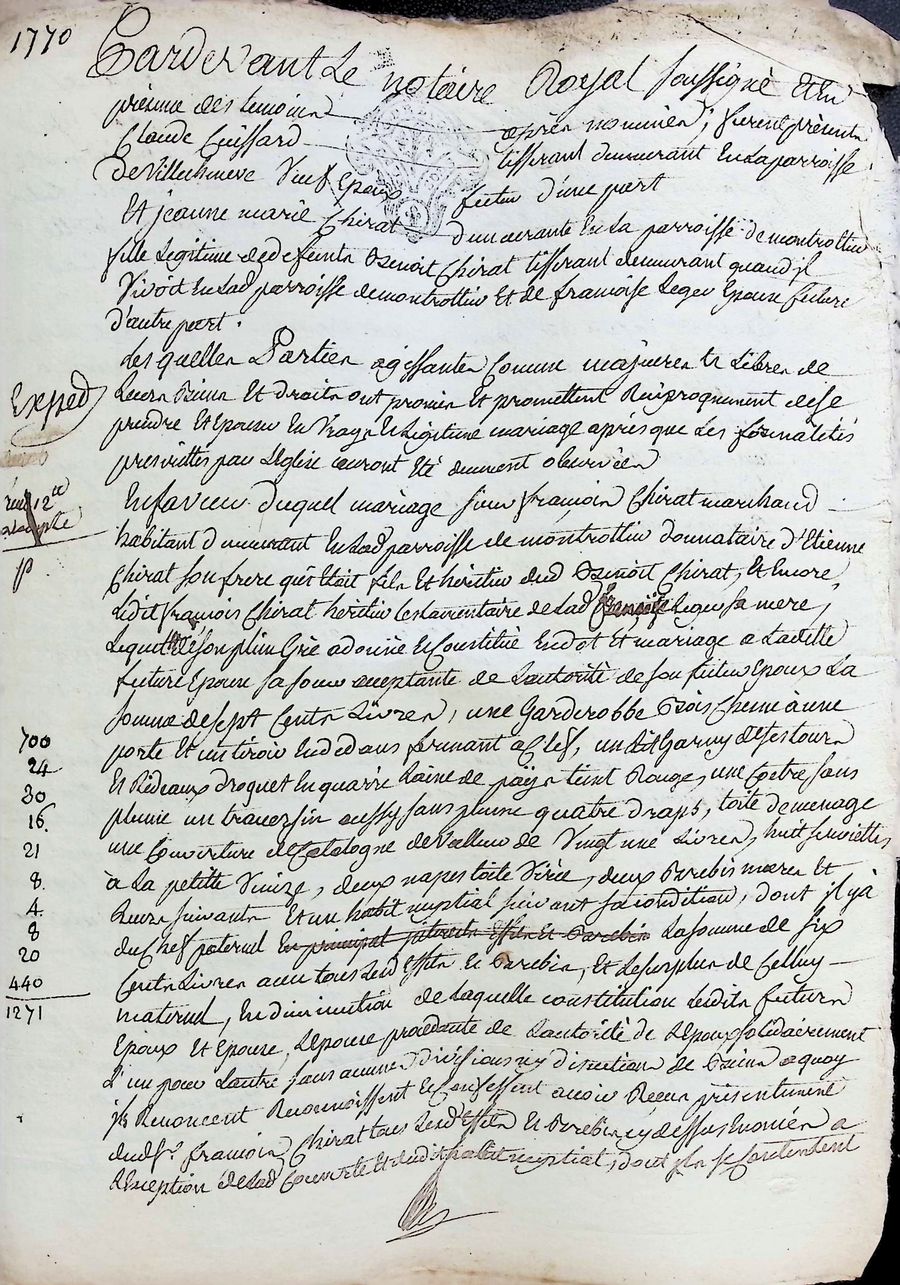 1770
Pardevant Le notaire Royal soussigné Et En
présence des temoins après nommés, furent présents
Claude Cuissard tisserant demeurant En la parroisse
De Villecheneve Veuf Epoux futur d'une part
Et jeanne marie Chirat demeurante En La parroisse de montrottier
fille Legitime de defeunts Benoit Chirat tisserant demeurant quand il
Vivoit En lad parroisse de montrottier Et de francoise Epouse future
d'autre part.
Les quelles Parties agissantes Comme majeures Et Libres de
Leurs Biens Et droits ont promis Et promettent Réciproquement de se
prendre Et Epouser En Vray Et Legitime mariage après que Les formalités
prescrittes par L'Eglise auront Eté duement observées
Exped
En faveur duquel mariage sieur françois Chirat marchand
12tt
habitant demeurant En lad parroisse de montrottier donnataire d'Etienne
Chirat son frere qui Etoit fils Et héritier dud Benoit Chirat, Et Encore
Ledit françois Chirat heritier testamentaire de lad françoise sa mere,
Lequel de son plein Gré a donné Et Constitué En dot Et mariage a Laditte
future Epouse sa soeur acceptante de Lautorité de son futur Epoux La
somme de sept Cents Livres, une Garderobbe Bois Chene à une
700
porte Et un tiroir En dedans fermant a Clef, un Lit Garny de ses tours
24
Et Rideaux droguet En quarré Laine de païs teint Rouge, une Coetre sans
30
plume un traversin aussy sans plume quatre draps, toile de menage
16.
une Couverture de Catalogne de valleur de Vingt une Livres, huit serviettes
21
à La petite Venize, deux napes toile Virée, deux Brebis mares Et
8.
Leurs suivants Et un habit nuptial suivant sa condition, dont il y a
4.
du Chef paternel La somme de six
8
Cents Livres avec tous Lesd Effets Et Brebis, Et Le surplus de Celluy
20
maternel, En diminution de laquelle constitution Lesdits futurs
440
Epoux Et Epouse, Lepouse procedante de Lautorité de L'Epoux solidairement
1271
L'un pour Lautre sans aucune division ny discution de Biens a quoy
ils Renoncent Reconnoissent Et Confessent avoir Recu présentement
dud sr. françois Chirat tous Lesd Effets Et Brebis cy dessus Enoncés a
L'Exception de lad Couverte Et dudit habit nuptial, dont ils se Contentent